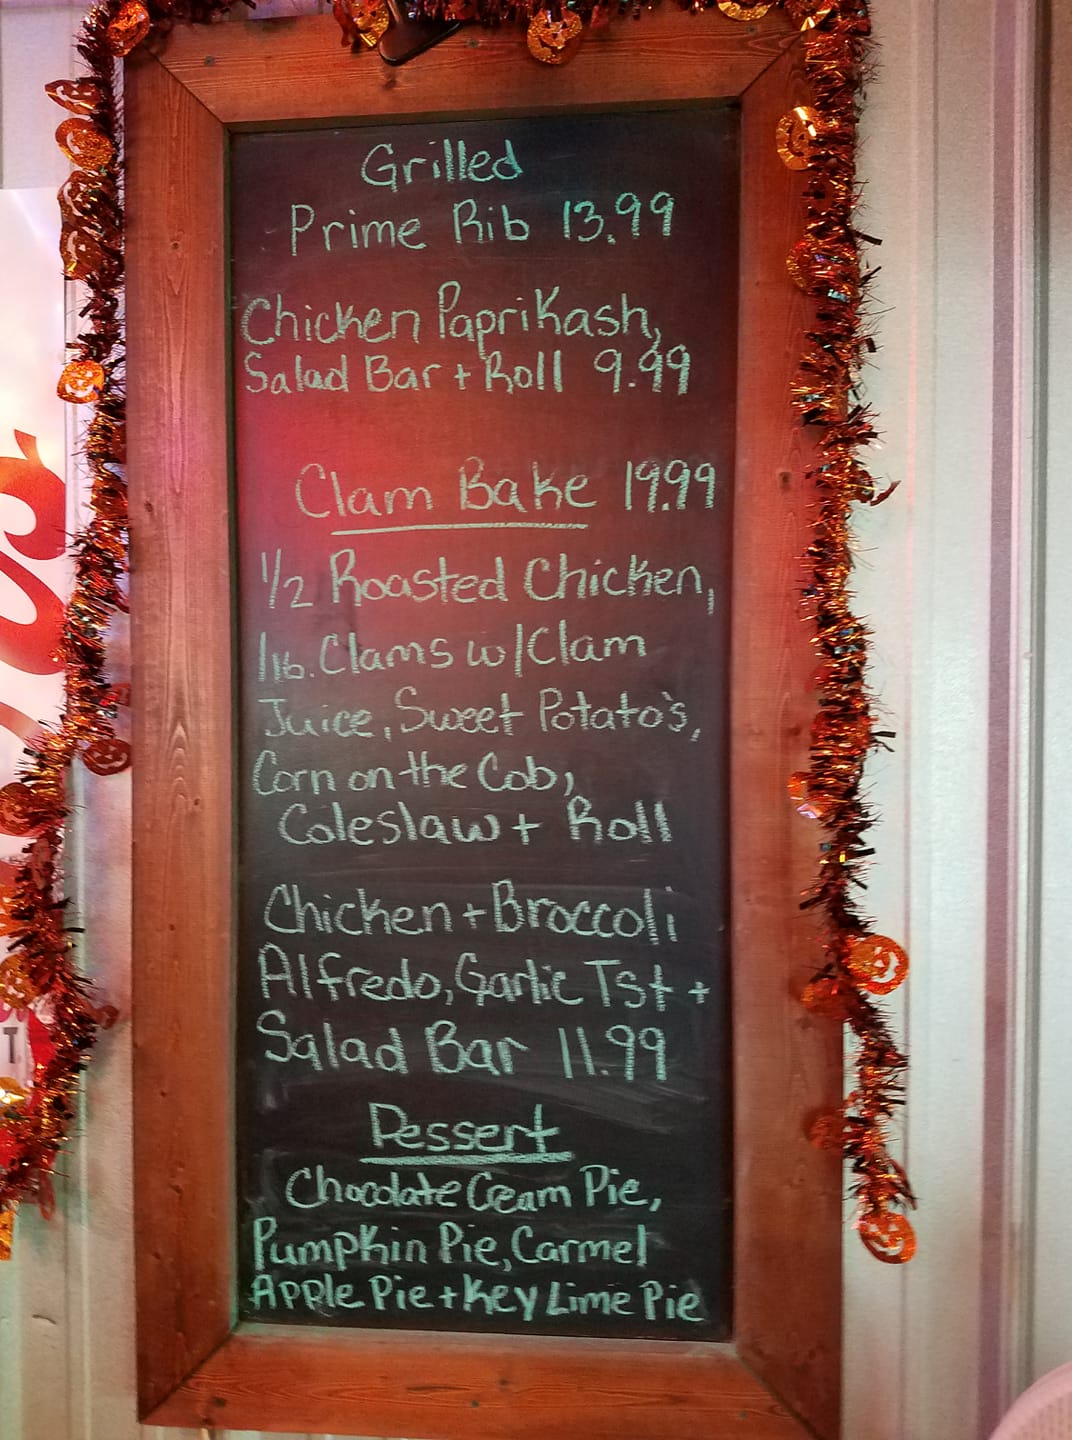 Grilled
Prime Rib 13.99
Chicken Paprikash,
Salad Bar + Roll 9.99
Clam Bake 19.99
1/2 Roasted Chicken,
1lb. Clams w/Clam
Juice, Sweet Potato's,
Corn on the Cob,
Coleslaw + Roll
Chicken + Broccoli
Alfredo, Garlic Tst +
Salad Bar 11.99
Dessert
Chocolate Cream Pie,
Pumpkin Pie, Carmel
Apple Pie + Key Lime Pie